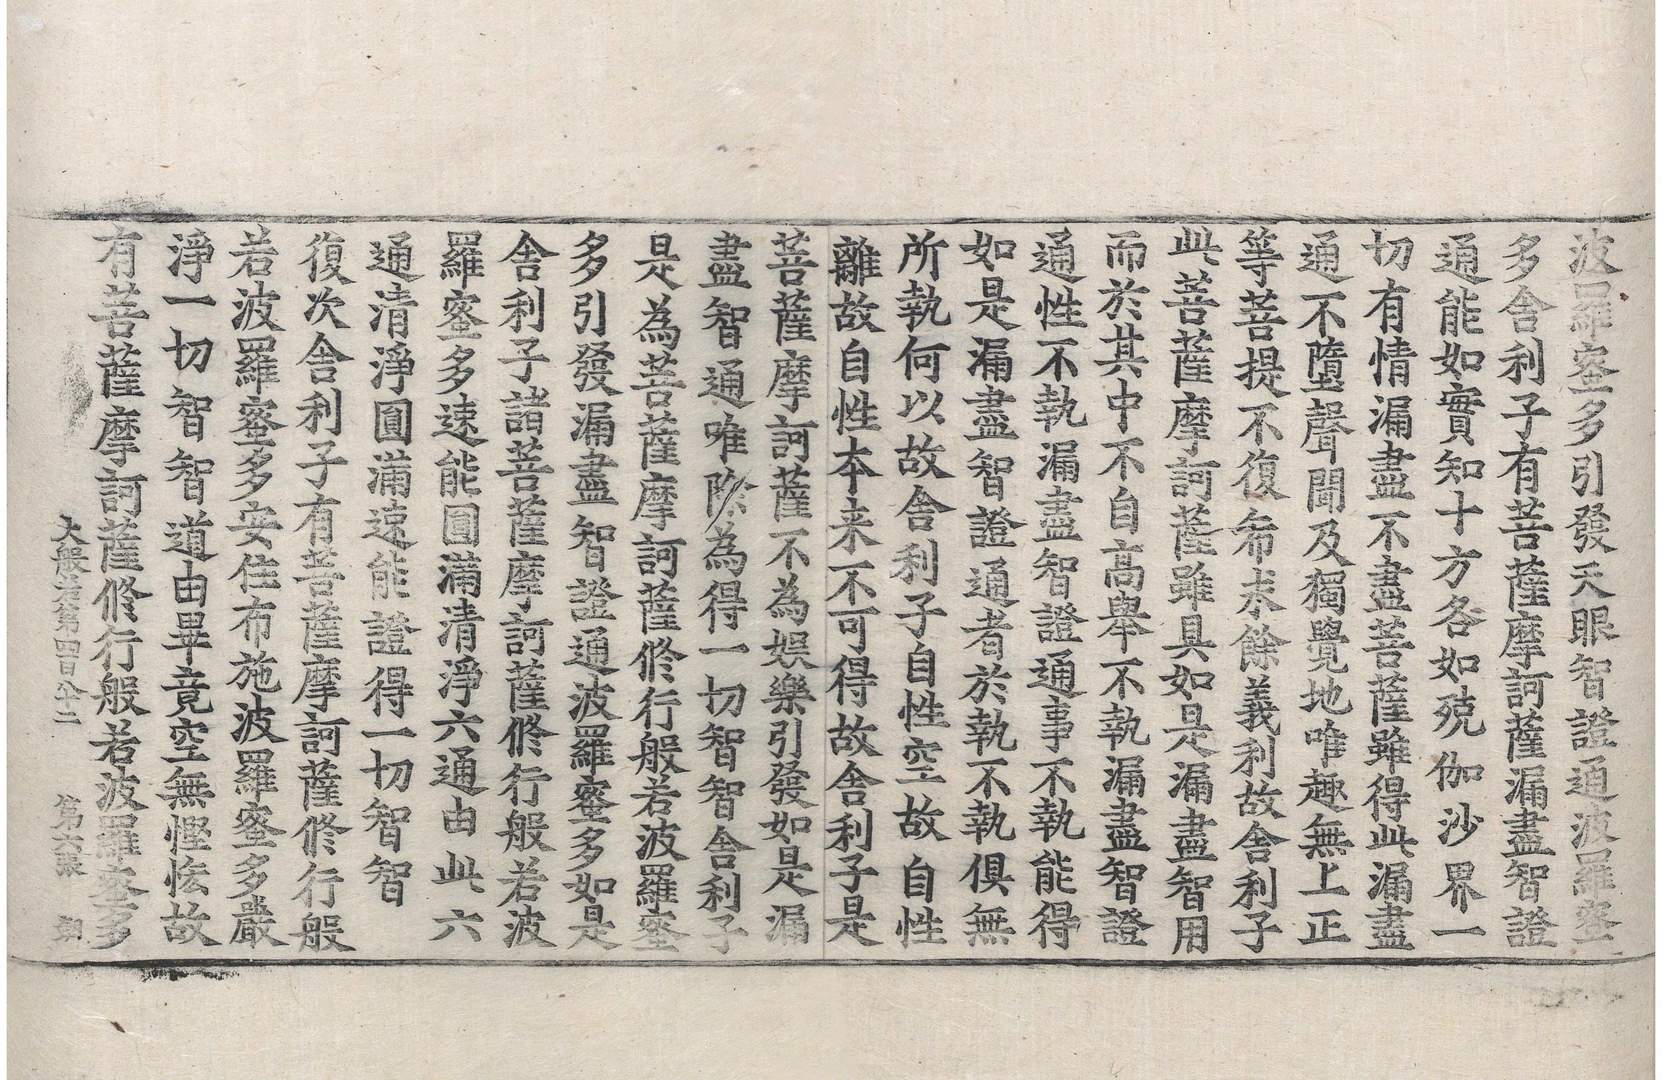 波羅蜜多引發天眼智證通波羅蜜
多舍利子有菩薩摩訶薩漏盡智證
通能如實知十方各如殑伽沙界一
切有情漏盡不盡菩薩雖得此漏盡
通不墮聲聞及獨覺地唯趣無上正
等菩提不復希求餘義利故舍利子
此菩薩摩訶薩雖具如是漏盡智用
而於其中不自高舉不執漏盡智證
通性不執漏盡智證通事不執能得
如是漏盡智證通者於執不執俱無
所執何以故舍利子自性空故自性
離故自性本来不可得故舍利子是
菩薩摩訶薩不為娛樂引發如是漏
盡智通唯除為得一切智智舍利子
是為菩薩摩訶薩修行般若波羅蜜
多引發漏盡智證通波羅蜜多如是
舍利子諸菩薩摩訶薩修行般若波
羅蜜多速能圓滿清淨六通由此六
通清淨圓滿速能證得一切智智
復次舍利子有菩薩摩訶薩修行般
若波羅蜜多安住布施波羅蜜多嚴
淨一切智智道由畢竟空無慳悋故
有菩薩摩訶薩修行般若波羅蜜多
大般若第四百二 第六張